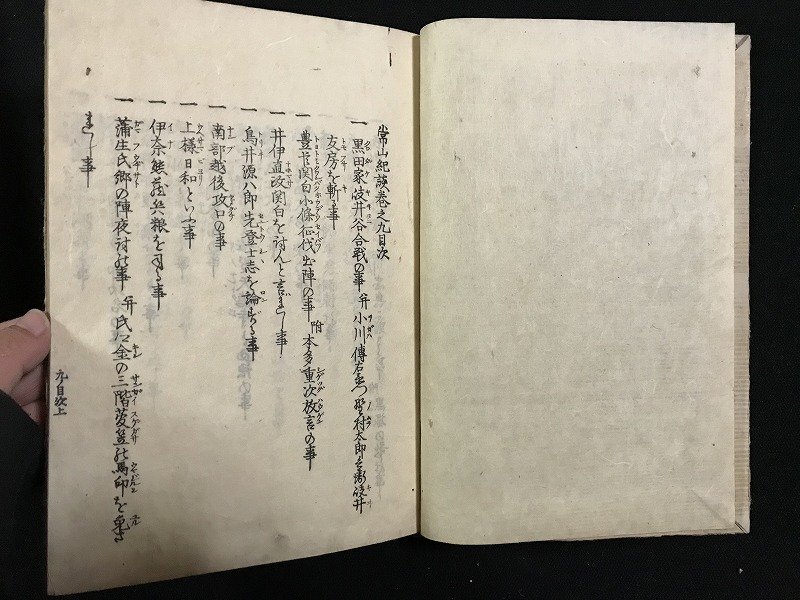 常山紀談巻之九目次
一 黒田家城井谷合戦の事 并 小川傳右衛門野村太郎兵衛城井
友房を斬る事
一 豊臣関白小條征伐出陣の事 附 本多重次放言の事
一 井伊直政関白を討んと言れし事
一 鳥井源八郎先登士志を論ずる事
一 南部越後攻口の事
一 上様日和といふ事
一 伊奈熊藏兵粮を
一 蒲生氏郷の陣夜討の事 并 氏郷金の三階菱笠の馬印を免さ
れし事
九ノ目次上